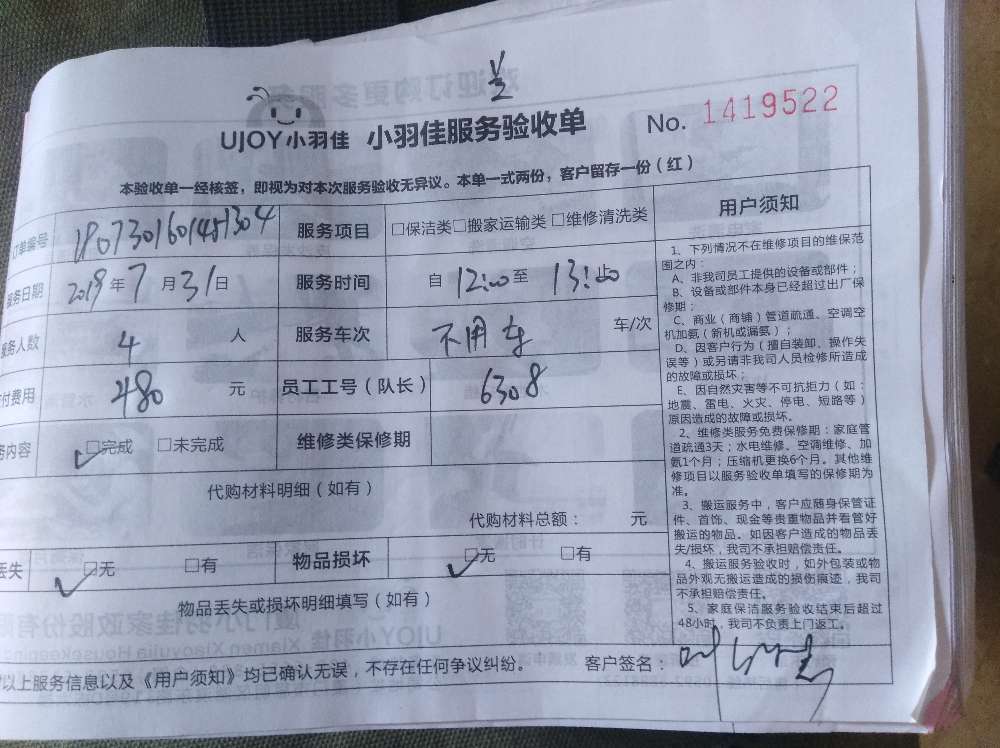 UJOY小羽佳 小羽佳服务验收单 No. 1419522
本验收单一经核签，即视为对本次服务验收无异议。本单一式两份，客户留存一份（红）
订单编号 服务项目 □保洁类□搬家运输类□维修清洗类
服务日期 2019年7月31日 服务时间 自12:00至13:00止
服务人数 4人 服务车次 不用车 车/次
付费用 480元 员工工号（队长） 6308
务内容 □完成 □未完成 维修类保修期
代购材料明细（如有）
代购材料总额： 元
丢失 □无 □有 物品损坏 □无 □有
物品丢失或损坏明细填写（如有）
以上服务信息以及《用户须知》均已确认无误，不存在任何争议纠纷。 客户签名：
用户须知
1、下列情况不在维修项目的维保范
围之内：
A、非我司员工提供的设备或部件；
B、设备或部件本身已经超过出厂保
修期：
C、商业（商铺）管道疏通、空调空
机加氨（新机或漏氨）；
D、因客户行为（擅自装卸、操作失
误等）或另请非我司人员检修所造成
的故障或损坏；
E、因自然灾害等不可抗拒力（如：
地震、雷电、火灾、停电、短路等）
原因造成的故障或损坏。
2、维修类服务免费保修期：家庭管
道疏通3天；水电维修、空调维修、加
氨1个月；压缩机更换6个月。其他维
修项目以服务验收单填写的保修期为
准。
3、搬运服务中，客户应随身保管证
件、首饰、现金等贵重物品并看管好
搬运的物品。如因客户造成的物品丢
失/损坏，我司不承担赔偿责任。
4、搬运服务验收时，如外包装或物
品外观无搬运造成的损伤痕迹，我司
不承担赔偿责任。
5、家庭保洁服务验收结束后超过
48小时，我司不负责上门返工。